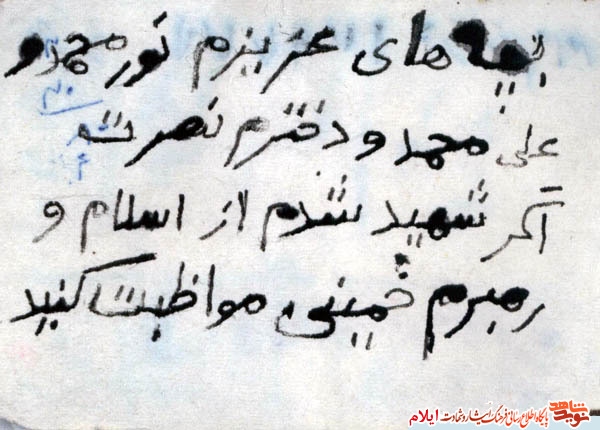 بچه های عزیزم نور محمد و
علی محمد و دخترم نصرت
اگر شهید شدم از اسلام و
رهبرم خمینی مواظبت کنید
نوید شاهد پایگاه اطلاع رسانی فرهنگ ایثار و شهادت ایلام